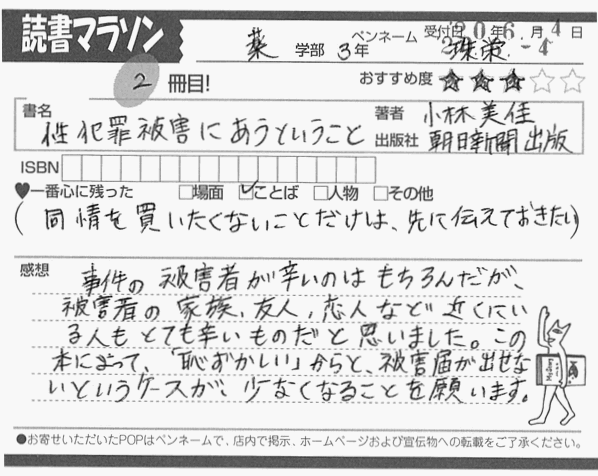 読書マラソン
薬 学部 3年 ペンネーム 珠栄 受付日 '20年6.月4日
-4
2 冊目!
おすすめ度 ★★★☆☆
書名 性犯罪被害にあうということ
著者 小林美佳
出版社 朝日新聞出版
ISBN
♥一番心に残った □場面 ☑ことば □人物 □その他
(同情を買いたくないことだけは、先に伝えておきたい)
感想
事件の被害者が辛いのはもちろんだが、
被害者の家族、友人、恋人など近くにい
る人もとても辛いものだと思いました。この
本によって、「恥ずかしい」からと、被害届が出せな
いというケースが、少なくなることを願います。
●お寄せいただいたPOPはペンネームで、店内で掲示、ホームページおよび宣伝物への転載をご了承ください。